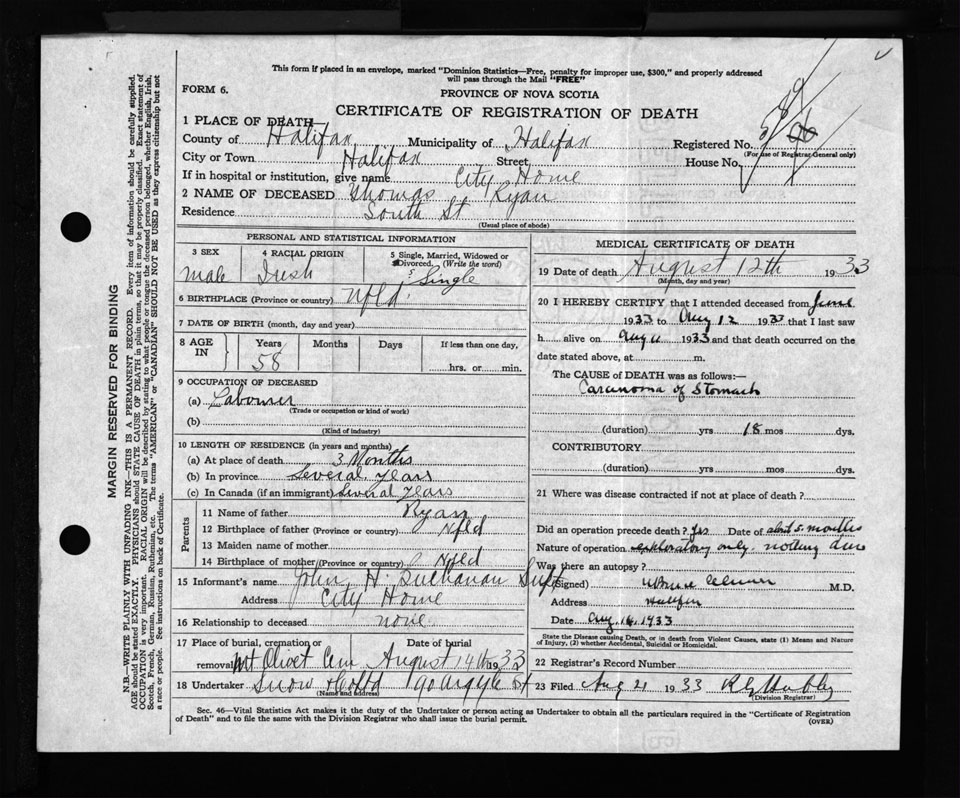 This form if placed in an envelope, marked "Dominion Statistics—Free, penalty for improper use, $300," and properly addressed
will pass through the Mail "FREE"
FORM 6.
PROVINCE OF NOVA SCOTIA
CERTIFICATE OF REGISTRATION OF DEATH
1 PLACE OF DEATH
County of Halifax Municipality of Halifax Registered No.
(For use of Registrar General only)
City or Town Halifax Street House No.
If in hospital or institution, give name City Home
2 NAME OF DECEASED Thomas Ryan
Residence South St
(Usual place of abode)
PERSONAL AND STATISTICAL INFORMATION
3 SEX 4 RACIAL ORIGIN 5 Single, Married, Widowed or
Divorced. (Write the word)
Male Irish Single
6 BIRTHPLACE (Province or country) Nfld.
7 DATE OF BIRTH (month, day and year)
8 AGE IN Years Months Days If less than one day,
58 hrs. or min.
9 OCCUPATION OF DECEASED
(a) Labourer
(Trade or occupation or kind of work)
(b)
(Kind of industry)
10 LENGTH OF RESIDENCE (in years and months)
(a) At place of death 3 Months
(b) In province Several Years
(c) In Canada (if an immigrant) Several Years
Parents
11 Name of father Ryan
12 Birthplace of father (Province or country) Nfld
13 Maiden name of mother
14 Birthplace of mother (Province or country) Nfld
15 Informant's name John H. Buchanan Supt
Address City Home
16 Relationship to deceased none
17 Place of burial, cremation or Date of burial
removal Mt Olivet Cem August 14th 1933
18 Undertaker Snow & Co Ltd 90 Argyle St
(Name and address)
MEDICAL CERTIFICATE OF DEATH
19 Date of death August 12th 1933
(Month, day and year)
20 I HEREBY CERTIFY that I attended deceased from June
1933 to Aug 12 1933 that I last saw
h alive on Aug 11 1933 and that death occurred on the
date stated above, at m.
The CAUSE of DEATH was as follows:—
Carcinoma of Stomach
(duration) yrs 18 mos dys.
CONTRIBUTORY
(duration) yrs mos dys.
21 Where was disease contracted if not at place of death?
Did an operation precede death? Yes Date of abt 5 months
Nature of operation exploratory only nothing done
Was there an autopsy?
(Signed) M.D.
Address Halifax
Date Aug. 14, 1933
State the Disease causing Death, or in death from Violent Causes, state (1) Means and Nature
of Injury, (2) whether Accidental, Suicidal or Homicidal.
22 Registrar's Record Number
23 Filed Aug 21 1933
(Division Registrar)
Sec. 46—Vital Statistics Act makes it the duty of the Undertaker or person acting as Undertaker to obtain all the particulars required in the "Certificate of Registration
of Death" and to file the same with the Division Registrar who shall issue the burial permit.
(OVER)
MARGIN RESERVED FOR BINDING
N.B.—WRITE PLAINLY WITH UNFADING INK—THIS IS A PERMANENT RECORD. Every item of information should be carefully supplied.
AGE should be stated EXACTLY. PHYSICIANS should STATE CAUSE OF DEATH in plain terms, so that it may be properly classified. Exact statement of
OCCUPATION is very important. RACIAL ORIGIN will be described by stating to what people or tongue the deceased person belonged, whether English, Irish,
Scotch, French, German, Russian, Ruthenian, etc. The terms "AMERICAN" or "CANADIAN" SHOULD NOT BE USED as they express citizenship but not
a race or people. See instructions on back of Certificate.